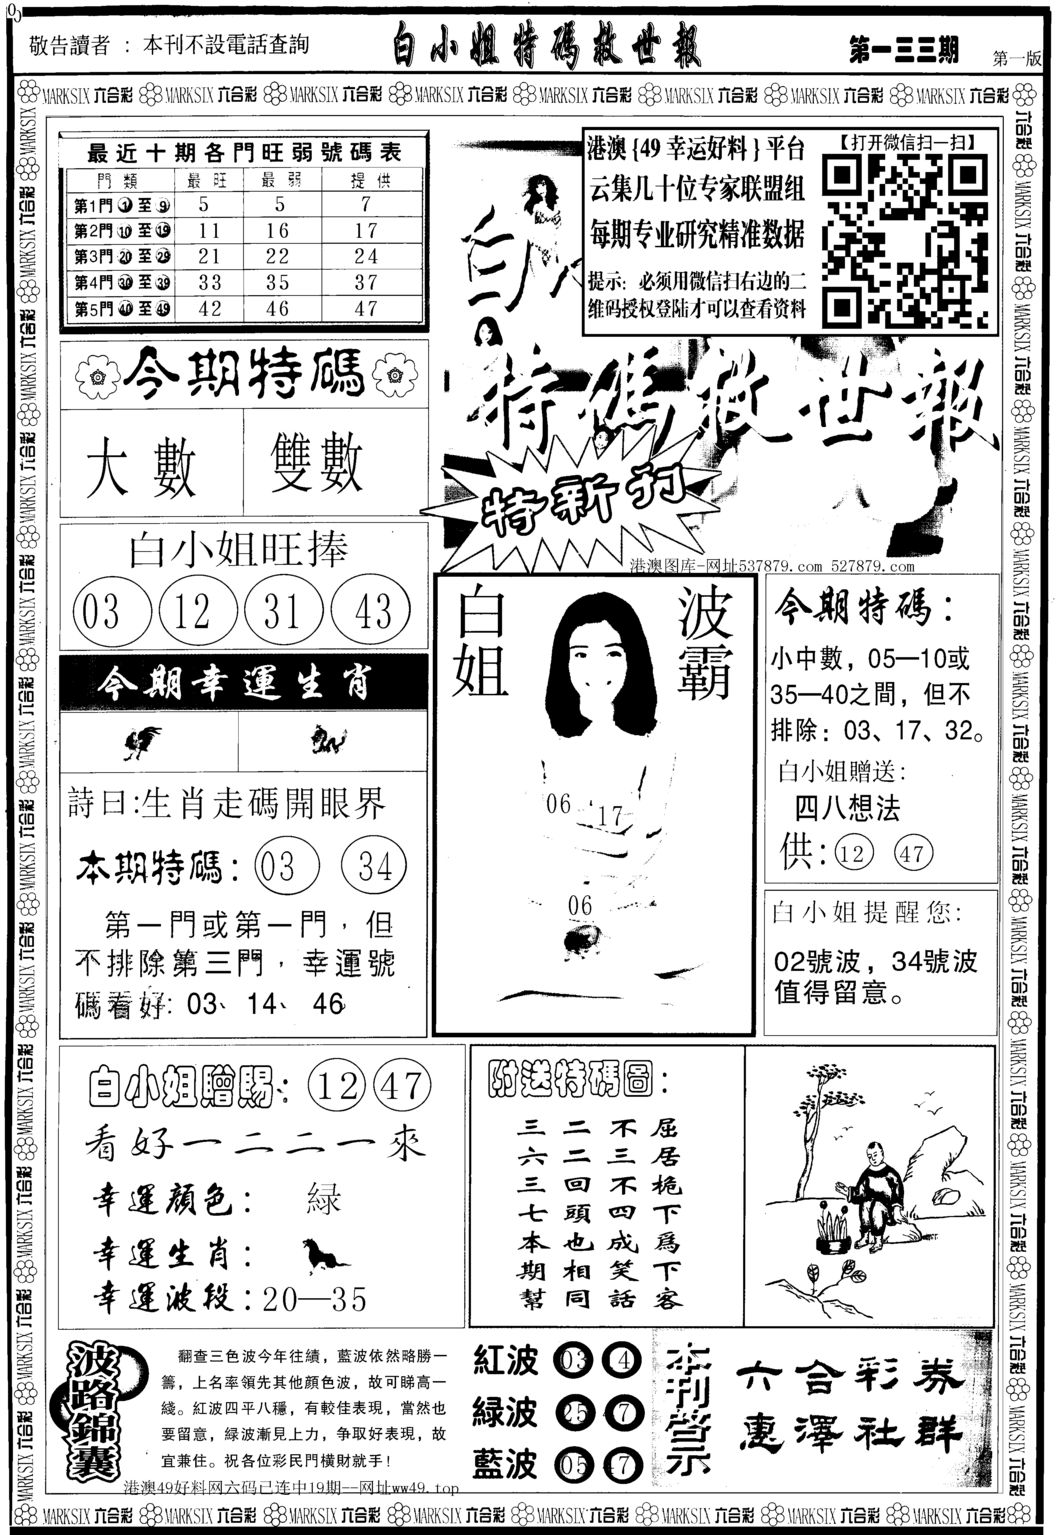 敬告讀者：本刊不設電話查詢
白小姐特碼救世報
第一三三期
第一版
MARKSIX 六合彩 MARKSIX 六合彩 MARKSIX 六合彩 MARKSIX 六合彩 MARKSIX 六合彩 MARKSIX 六合彩 MARKSIX 六合彩 MARKSIX 六合彩
最近十期各門旺弱號碼表
門類 最旺 最弱 提供
第1門 1 至 9 5 5 7
第2門 10 至 19 11 16 17
第3門 20 至 29 21 22 24
第4門 30 至 39 33 35 37
第5門 40 至 49 42 46 47
港澳{49幸运好料}平台
云集几十位专家联盟组
每期专业研究精准数据
提示：必须用微信扫右边的二
维码授权登陆才可以查看资料
【打开微信扫一扫】
白
特碼救世報
特新刊
港澳图库-网址537879.com 527879.com
今期特碼
大數 雙數
白小姐旺捧
03 12 31 43
今期幸運生肖
詩曰:生肖走碼開眼界
本期特碼: 03 34
第一門或第一門，但
不排除第三門，幸運號
碼看好: 03、14、46
白姐
波霸
06 17
06
今期特碼：
小中數，05—10或
35—40之間，但不
排除：03、17、32。
白小姐贈送:
四八想法
供: 12 47
白小姐提醒您:
02號波，34號波
值得留意。
白小姐贈賜: 12 47
看好一二二一來
幸運顏色: 緑
幸運生肖:
幸運波段:20—35
附送特碼圖:
屈居桅下爲下客
不三不四成笑話
二二回頭也相同
三六三七本期幫
波路錦囊
翻查三色波今年往績，藍波依然略勝一
籌，上名率領先其他顏色波，故可睇高一
綫。紅波四平八穩，有較佳表現，當然也
要留意，緑波漸見上力，争取好表現，故
宜兼住。祝各位彩民門横財就手!
港澳49好料网六码已连中19期--网址ww49.top
紅波 03 14
緑波 25 47
藍波 05 47
本刊啓示
六合彩券
惠澤社群
MARKSIX 六合彩 MARKSIX 六合彩 MARKSIX 六合彩 MARKSIX 六合彩 MARKSIX 六合彩 MARKSIX 六合彩 MARKSIX 六合彩 MARKSIX 六合彩